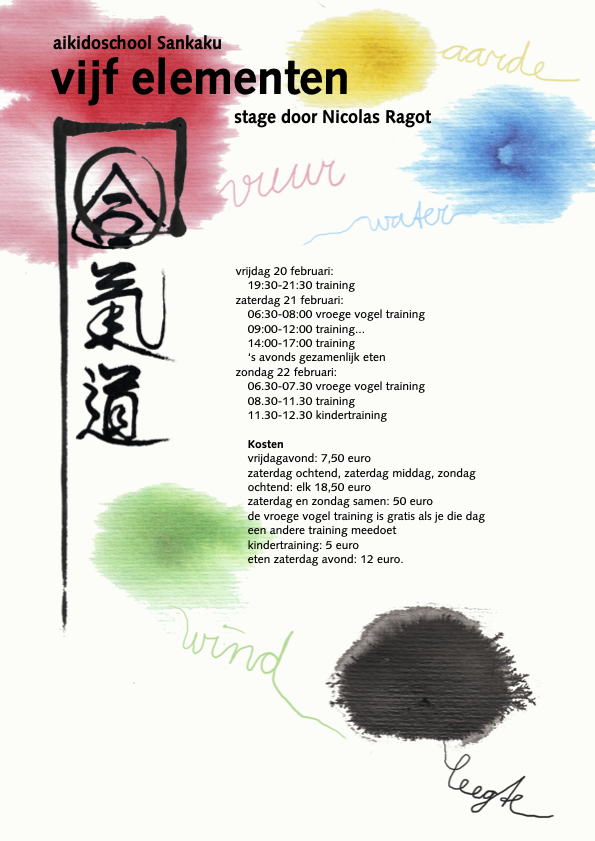 aikidoschool Sankaku
vijf elementen
stage door Nicolas Ragot
aarde
vuur
water
合
氣
道
vrijdag 20 februari:
19:30-21:30 training
zaterdag 21 februari:
06:30-08:00 vroege vogel training
09:00-12:00 training...
14:00-17:00 training
‘s avonds gezamenlijk eten
zondag 22 februari:
06.30-07.30 vroege vogel training
08.30-11.30 training
11.30-12.30 kindertraining
Kosten
vrijdagavond: 7,50 euro
zaterdag ochtend, zaterdag middag, zondag
ochtend: elk 18,50 euro
zaterdag en zondag samen: 50 euro
de vroege vogel training is gratis als je die dag
een andere training meedoet
kindertraining: 5 euro
eten zaterdag avond: 12 euro.
wind
leegte